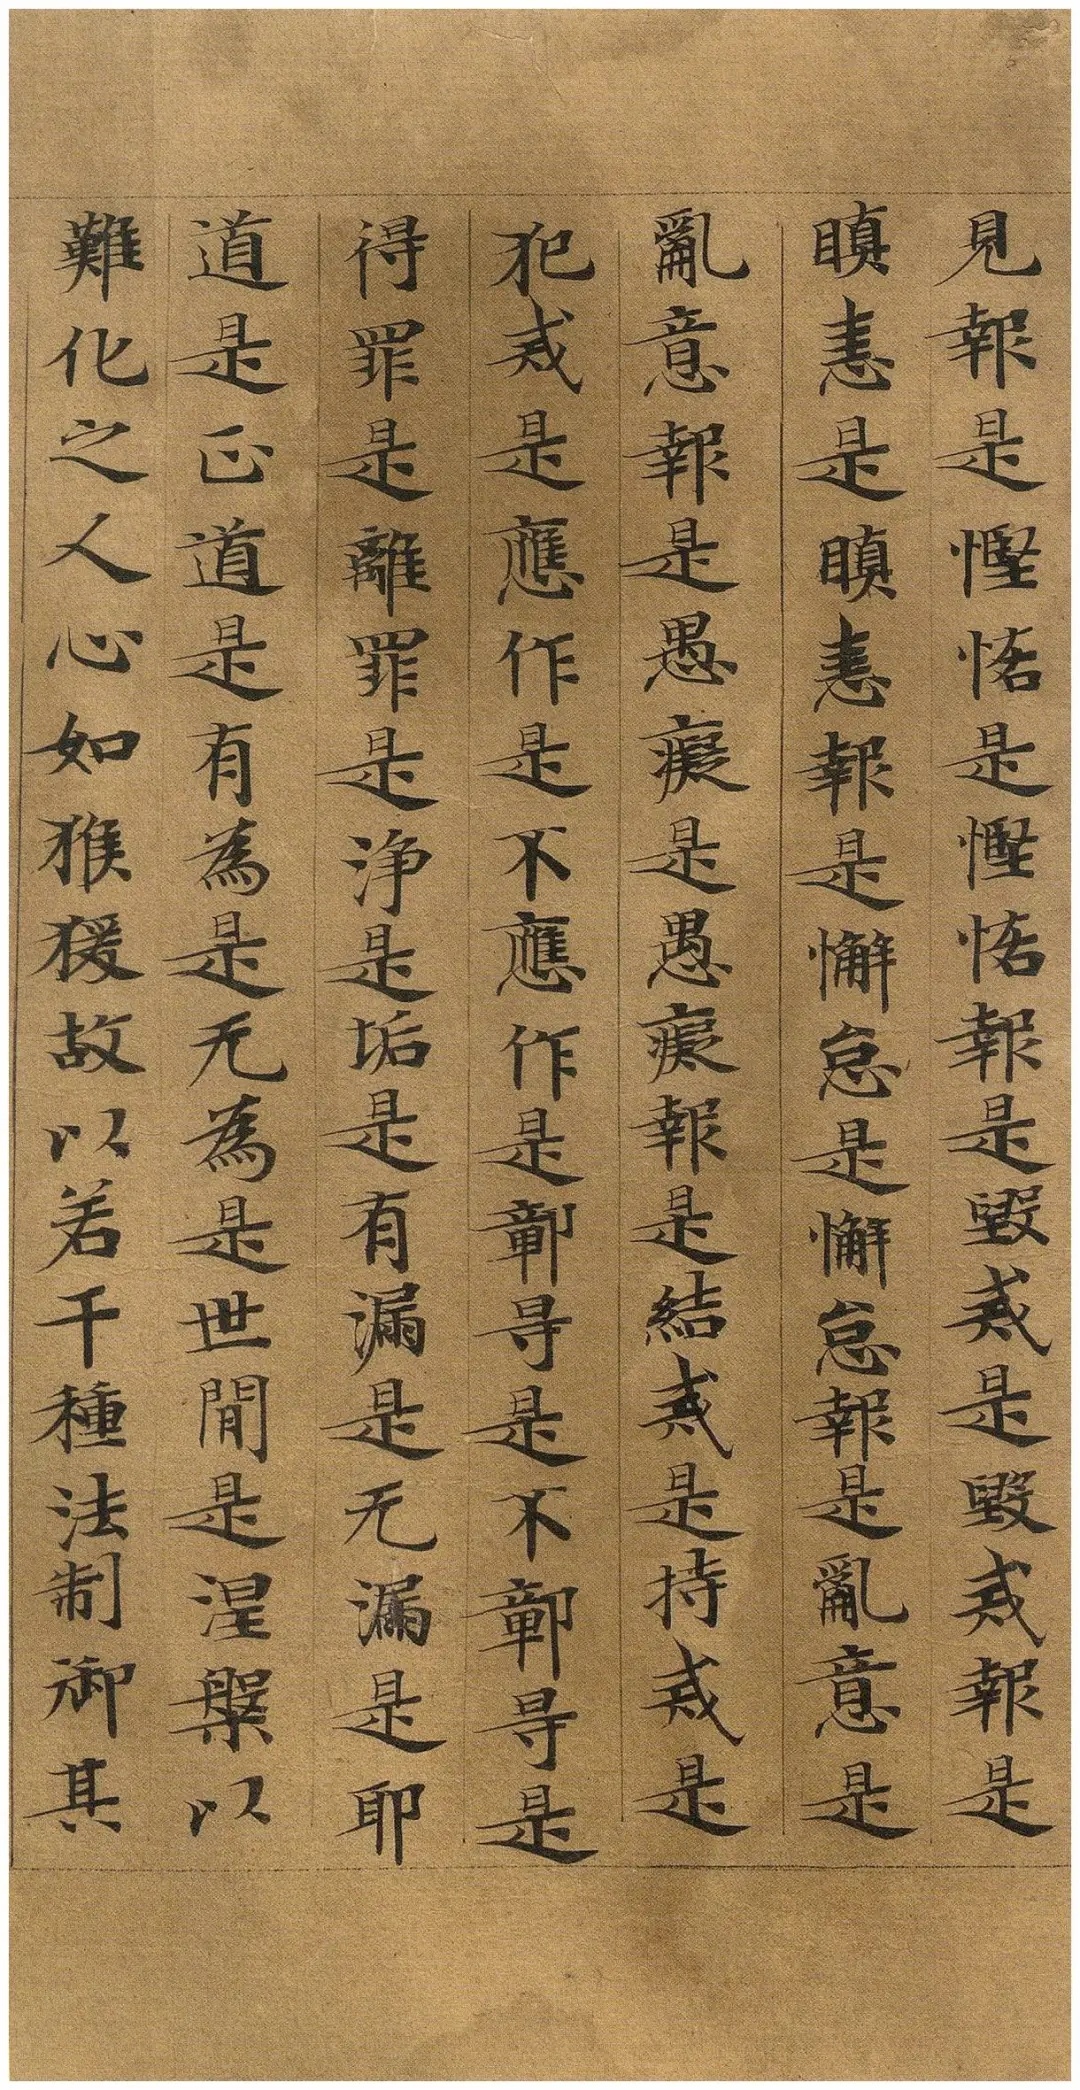 見報是慳悋是慳悋報是毀戒是毀戒報是
瞋恚是瞋恚報是懈怠是懈怠報是亂意是
亂意報是愚癡是愚癡報是結戒是持戒是
犯戒是應作是不應作是鄣㝵是不鄣㝵是
得罪是離罪是淨是垢是有漏是无漏是耶
道是正道是有為是无為是世間是涅槃以
難化之人心如猴猨故以若干種法制御其